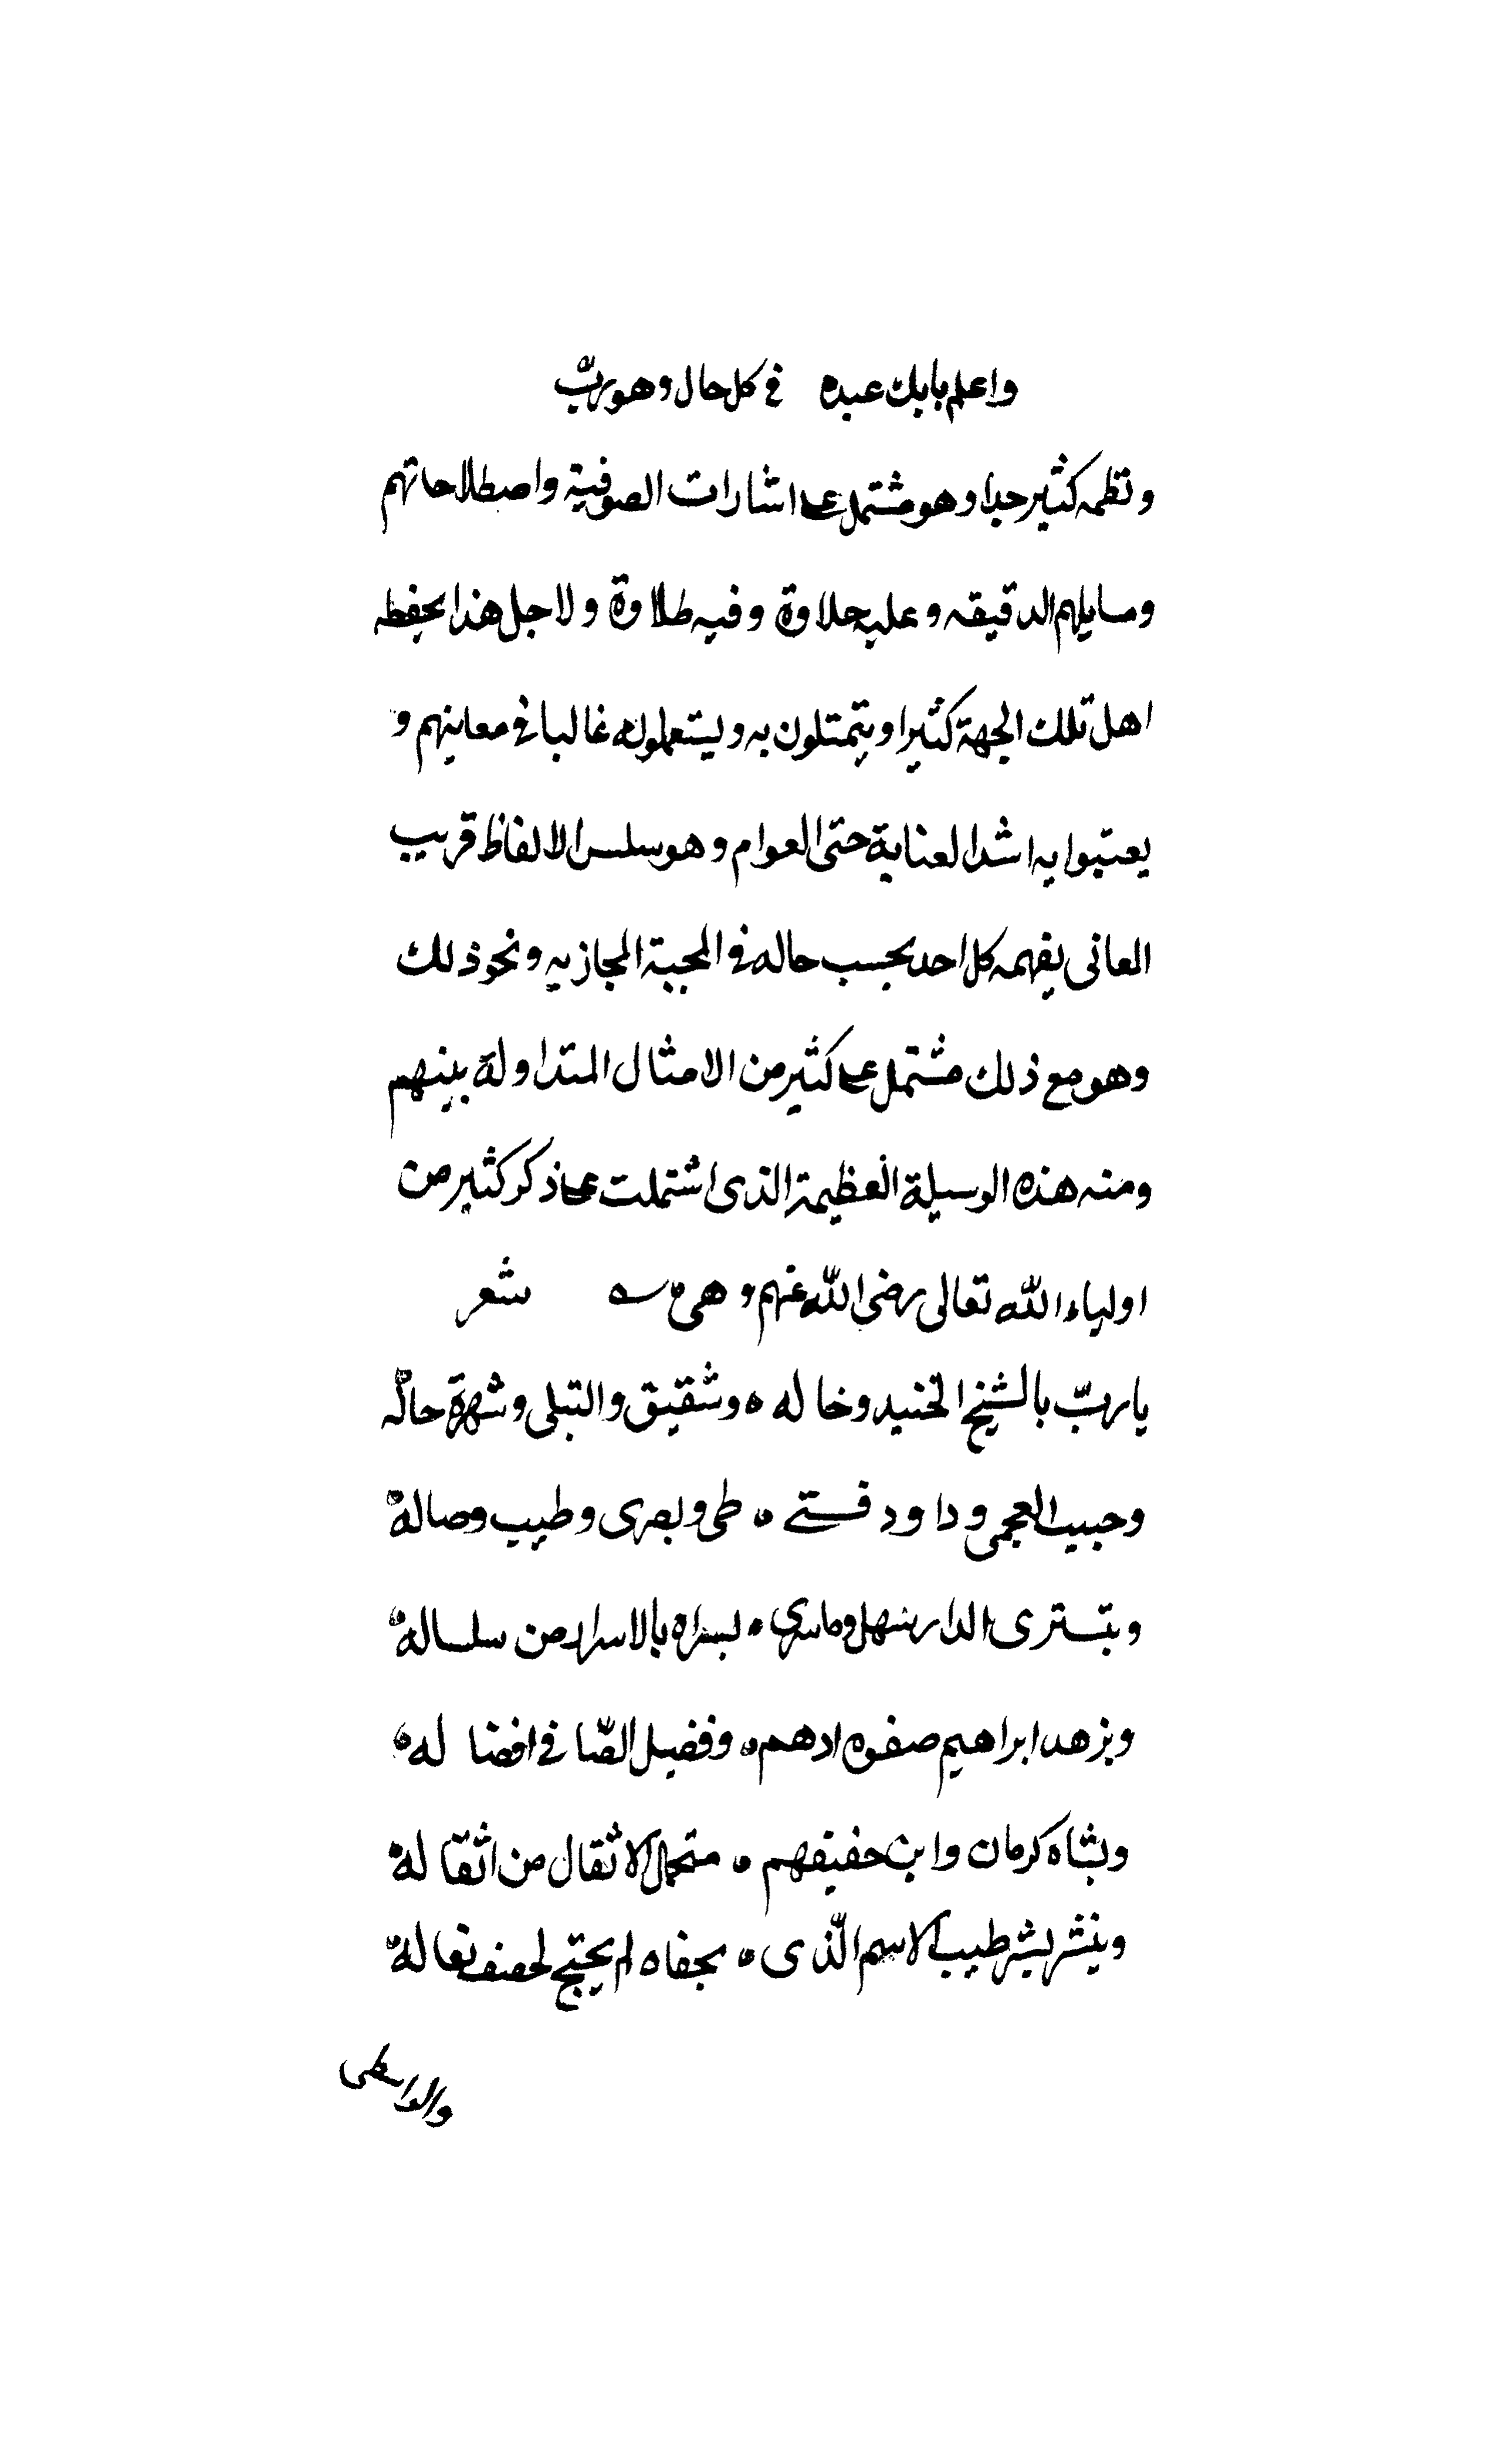 واعلم بانك عبده في كل حال وهو ربّ
ونظمه كثير جدا وهو مشتمل على اشارات الصوفية واصطلاحاتهم
ومسايلهم الدقيقه وعليه حلاوة وفيه طلاوة ولاجل هذا يحفظه
اهل تلك الجهة كثيرا ويتمثلون به ويستعملونه غالبا في معانيهم و
يعتبوا به اشد العناية حتى العوام وهو سلس الالفاظ قريب
المعانى يفهمه كل احد بحسب حاله في المحبة المجازيه ونحو ذلك
وهو مع ذلك مشتمل على كثير من الامثال المتداولة بينهم
ومنه هذه الوسيلة العظيمة الذى اشتملت على ذكر كثير من
اولياء الله تعالى رضى الله عنهم وهى هذه شعر
يا ربّ بالشيخ الجنيد وخاله ه وشقيق والشبلى وشهرة حاله
وحبيب العجمى وداود فتى ه طى وبصرى وطيب وصاله
وبتسترى الدار سهل وما سرى ه بسراه بالاسرار من سلساله
وبزهد ابراهيم صفوه ادهم ه وفضيل الصّا في افضا له
وبشاه كرمان وابن حفيفهم ه متحمل الاثقال من اثقا له
وبنشر بشر طيب الاسم الّذى ه بحفاه لم يحتج لخصف نعاله
والواسطى